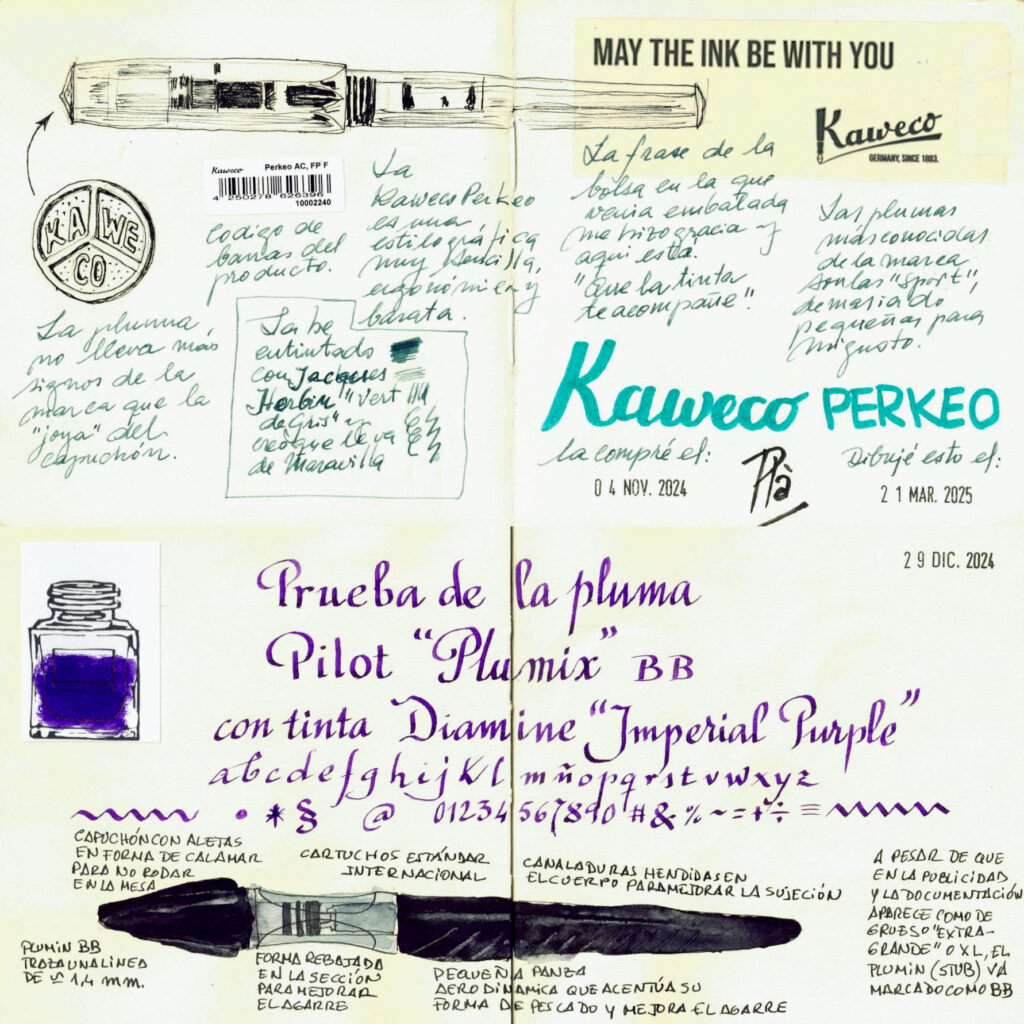 MAY THE INK BE WITH YOU
Kaweco
GERMANY, SINCE 1883.
KA WE
CO
Kaweco Perkeo AC, FP F
4 250278 626396
10002240
Codigo de
barras del
producto.
La
Kaweco Perkeo
es una
estilográfica
muy sencilla,
ergonómica y
barata.
La frase de la
bolsa en la que
venia embalada
me hizo gracia y
aqui está:
"Que la tinta
te acompañe".
Las plumas
más conocidas
de la marca
son las "Sport",
demasiado
pequeñas para
mi gusto.
La pluma,
no lleva más
signos de la
marca que la
"joya" del
capuchón.
La he
entintado
con Jacques
Herbin "Vert
de Gris" y
creo que le va
de Maravilla
Kaweco PERKEO
la compré el:
04 NOV. 2024
Plà
Dibujé esto el:
21 MAR. 2025
29 DIC. 2024
Prueba de la pluma
Pilot "Plumix" BB
con tinta Diamine "Imperial Purple"
abcdefghijklmnñopqrstvwxyz
* § @ 01234567890 #&%~=+÷≡
CAPUCHÓN CON ALETAS
EN FORMA DE CALAMAR
PARA NO RODAR
EN LA MESA
CARTUCHOS ESTÁNDAR
INTERNACIONAL
CANALADURAS HENDIDAS EN
EL CUERPO PARA MEJORAR LA SUJECIÓN
A PESAR DE QUE
EN LA PUBLICIDAD
Y LA DOCUMENTACIÓN
APARECE COMO DE
GRUESO "EXTRA-
GRANDE" O XL, EL
PLUMIN (STUB) VA
MARCADO COMO BB
PLUMIN BB
TRAZA UNA LINEA
DE ≃ 1,4 mm.
FORMA REBAJADA
EN LA SECCIÓN
PARA MEJORAR
EL AGARRE
PEQUEÑA PANZA
AERODINAMICA QUE ACENTÚA SU
FORMA DE PESCADO Y MEJORA EL AGARRE